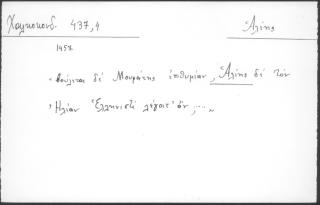 Χαλκοκονδ. 437,4 Ἀλίης
1457.
"βούλεται δὲ Μουράτης ἐπιθυμίαν, Ἀλίης δὲ τὸν
Ἠλίαν Ἑλληνιστὶ λέγοιτ' ἄν, ...."